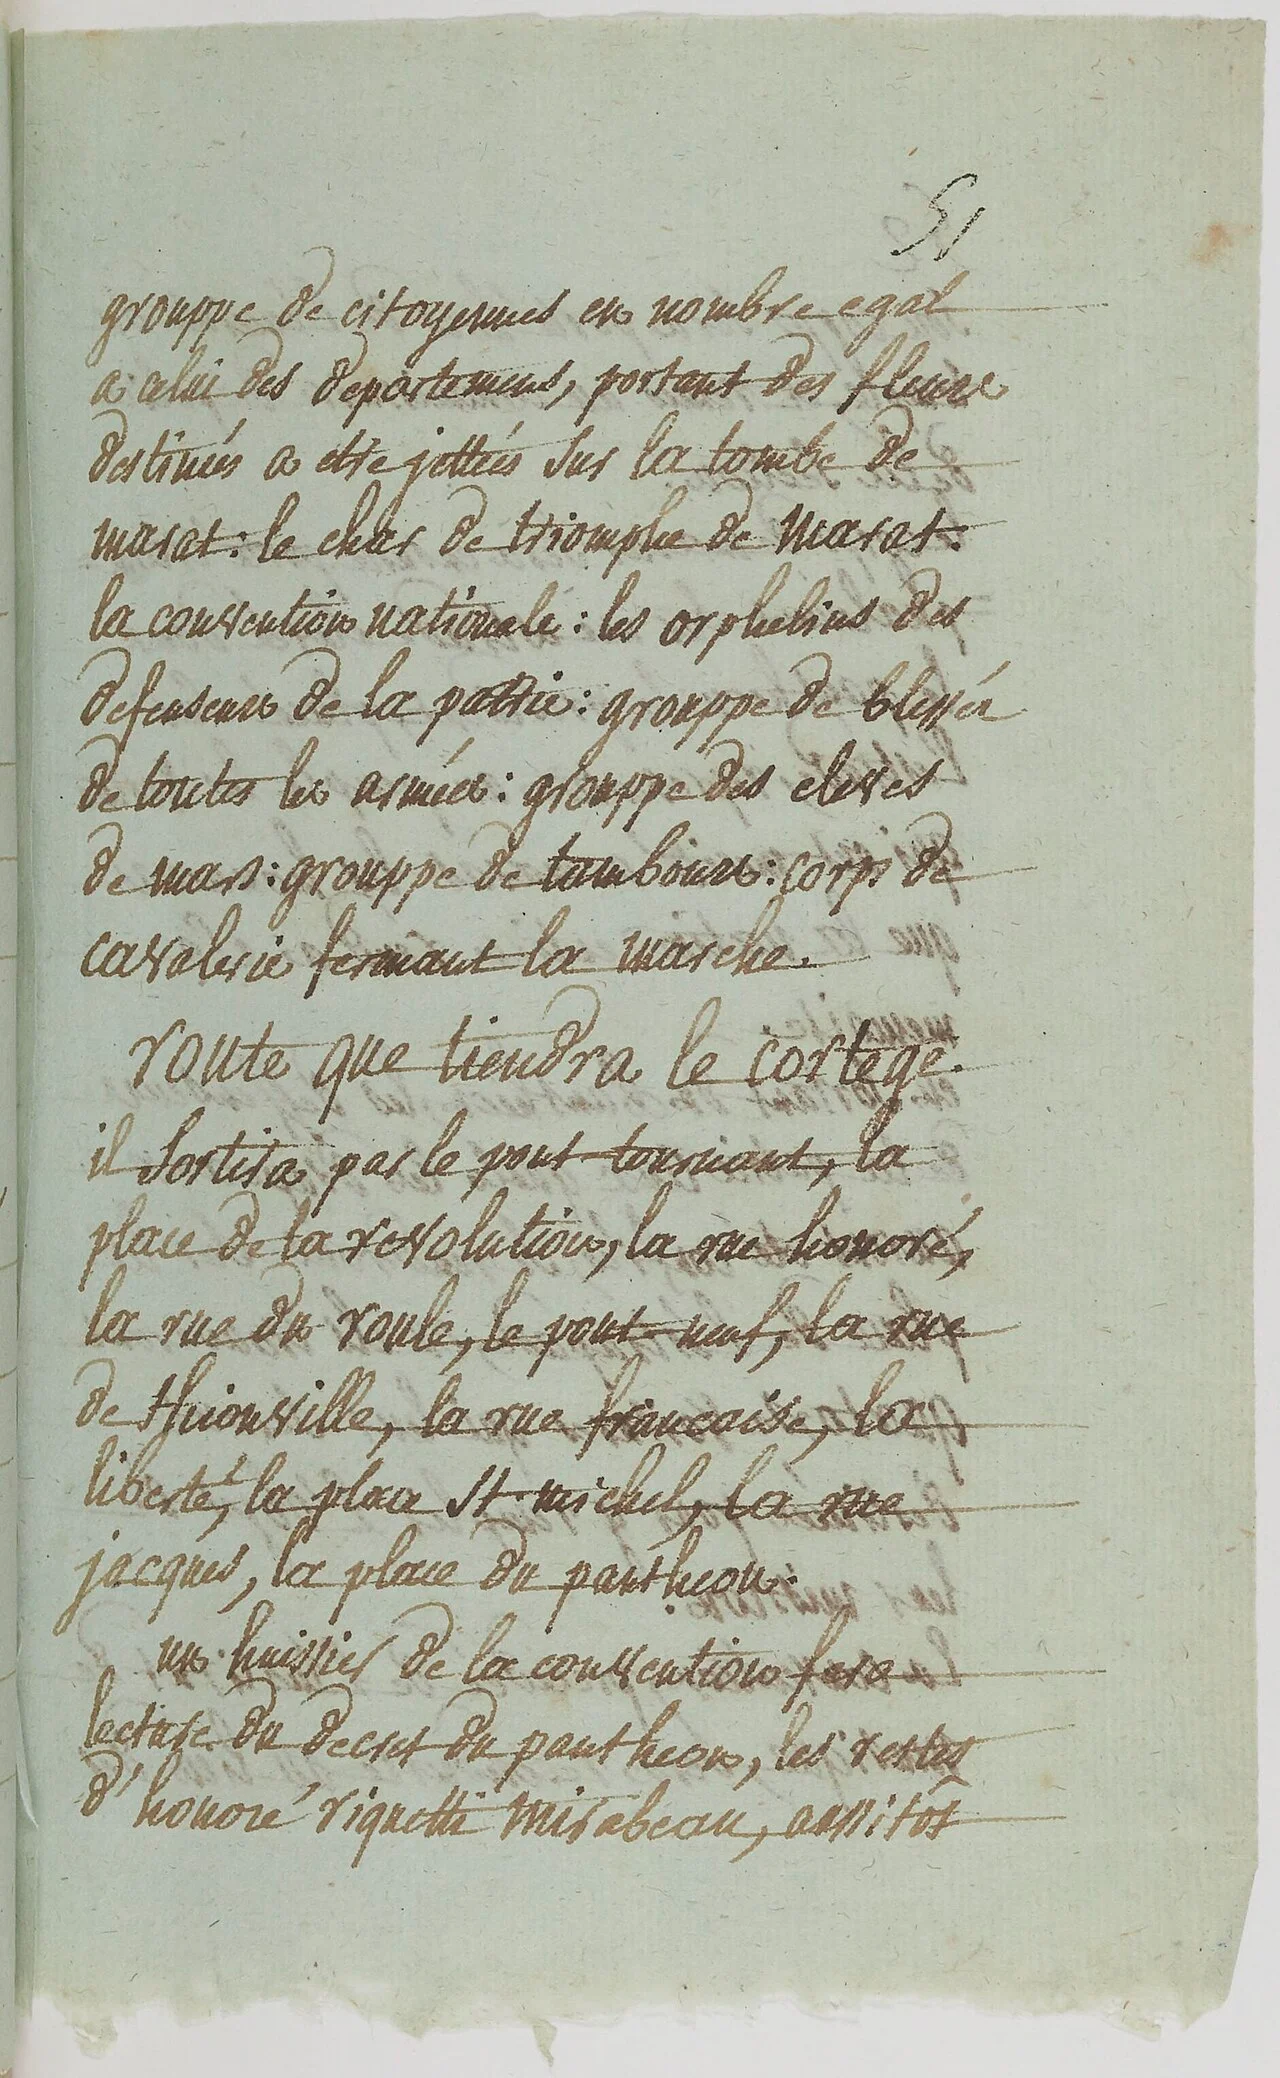 51
grouppe de citoyennes en nombre egal
a celui des departemens, portant des fleurs
destinés a etre jettées sur la tombe de
marat : le char de triomphe de marat.
la convention nationale : les orphelins des
defenseurs de la patrie : grouppe de blessés
de toutes les armées : grouppe des eleves
de mars : grouppe de tambours : corps de
cavalerie fermant la marche.
route que tiendra le cortege.
il sortira par le pont-tournant, la
place de la revolution, la rue honoré,
la rue du roule, le pont-neuf, la rue
de thionville, la rue francaise, la
liberté, la place st michel, la rue
jacques, la place du pantheon.
un huissier de la convention fera
lecture du decret du pantheon, les restes
d'honoré riquetti mirabeau, aussitôt